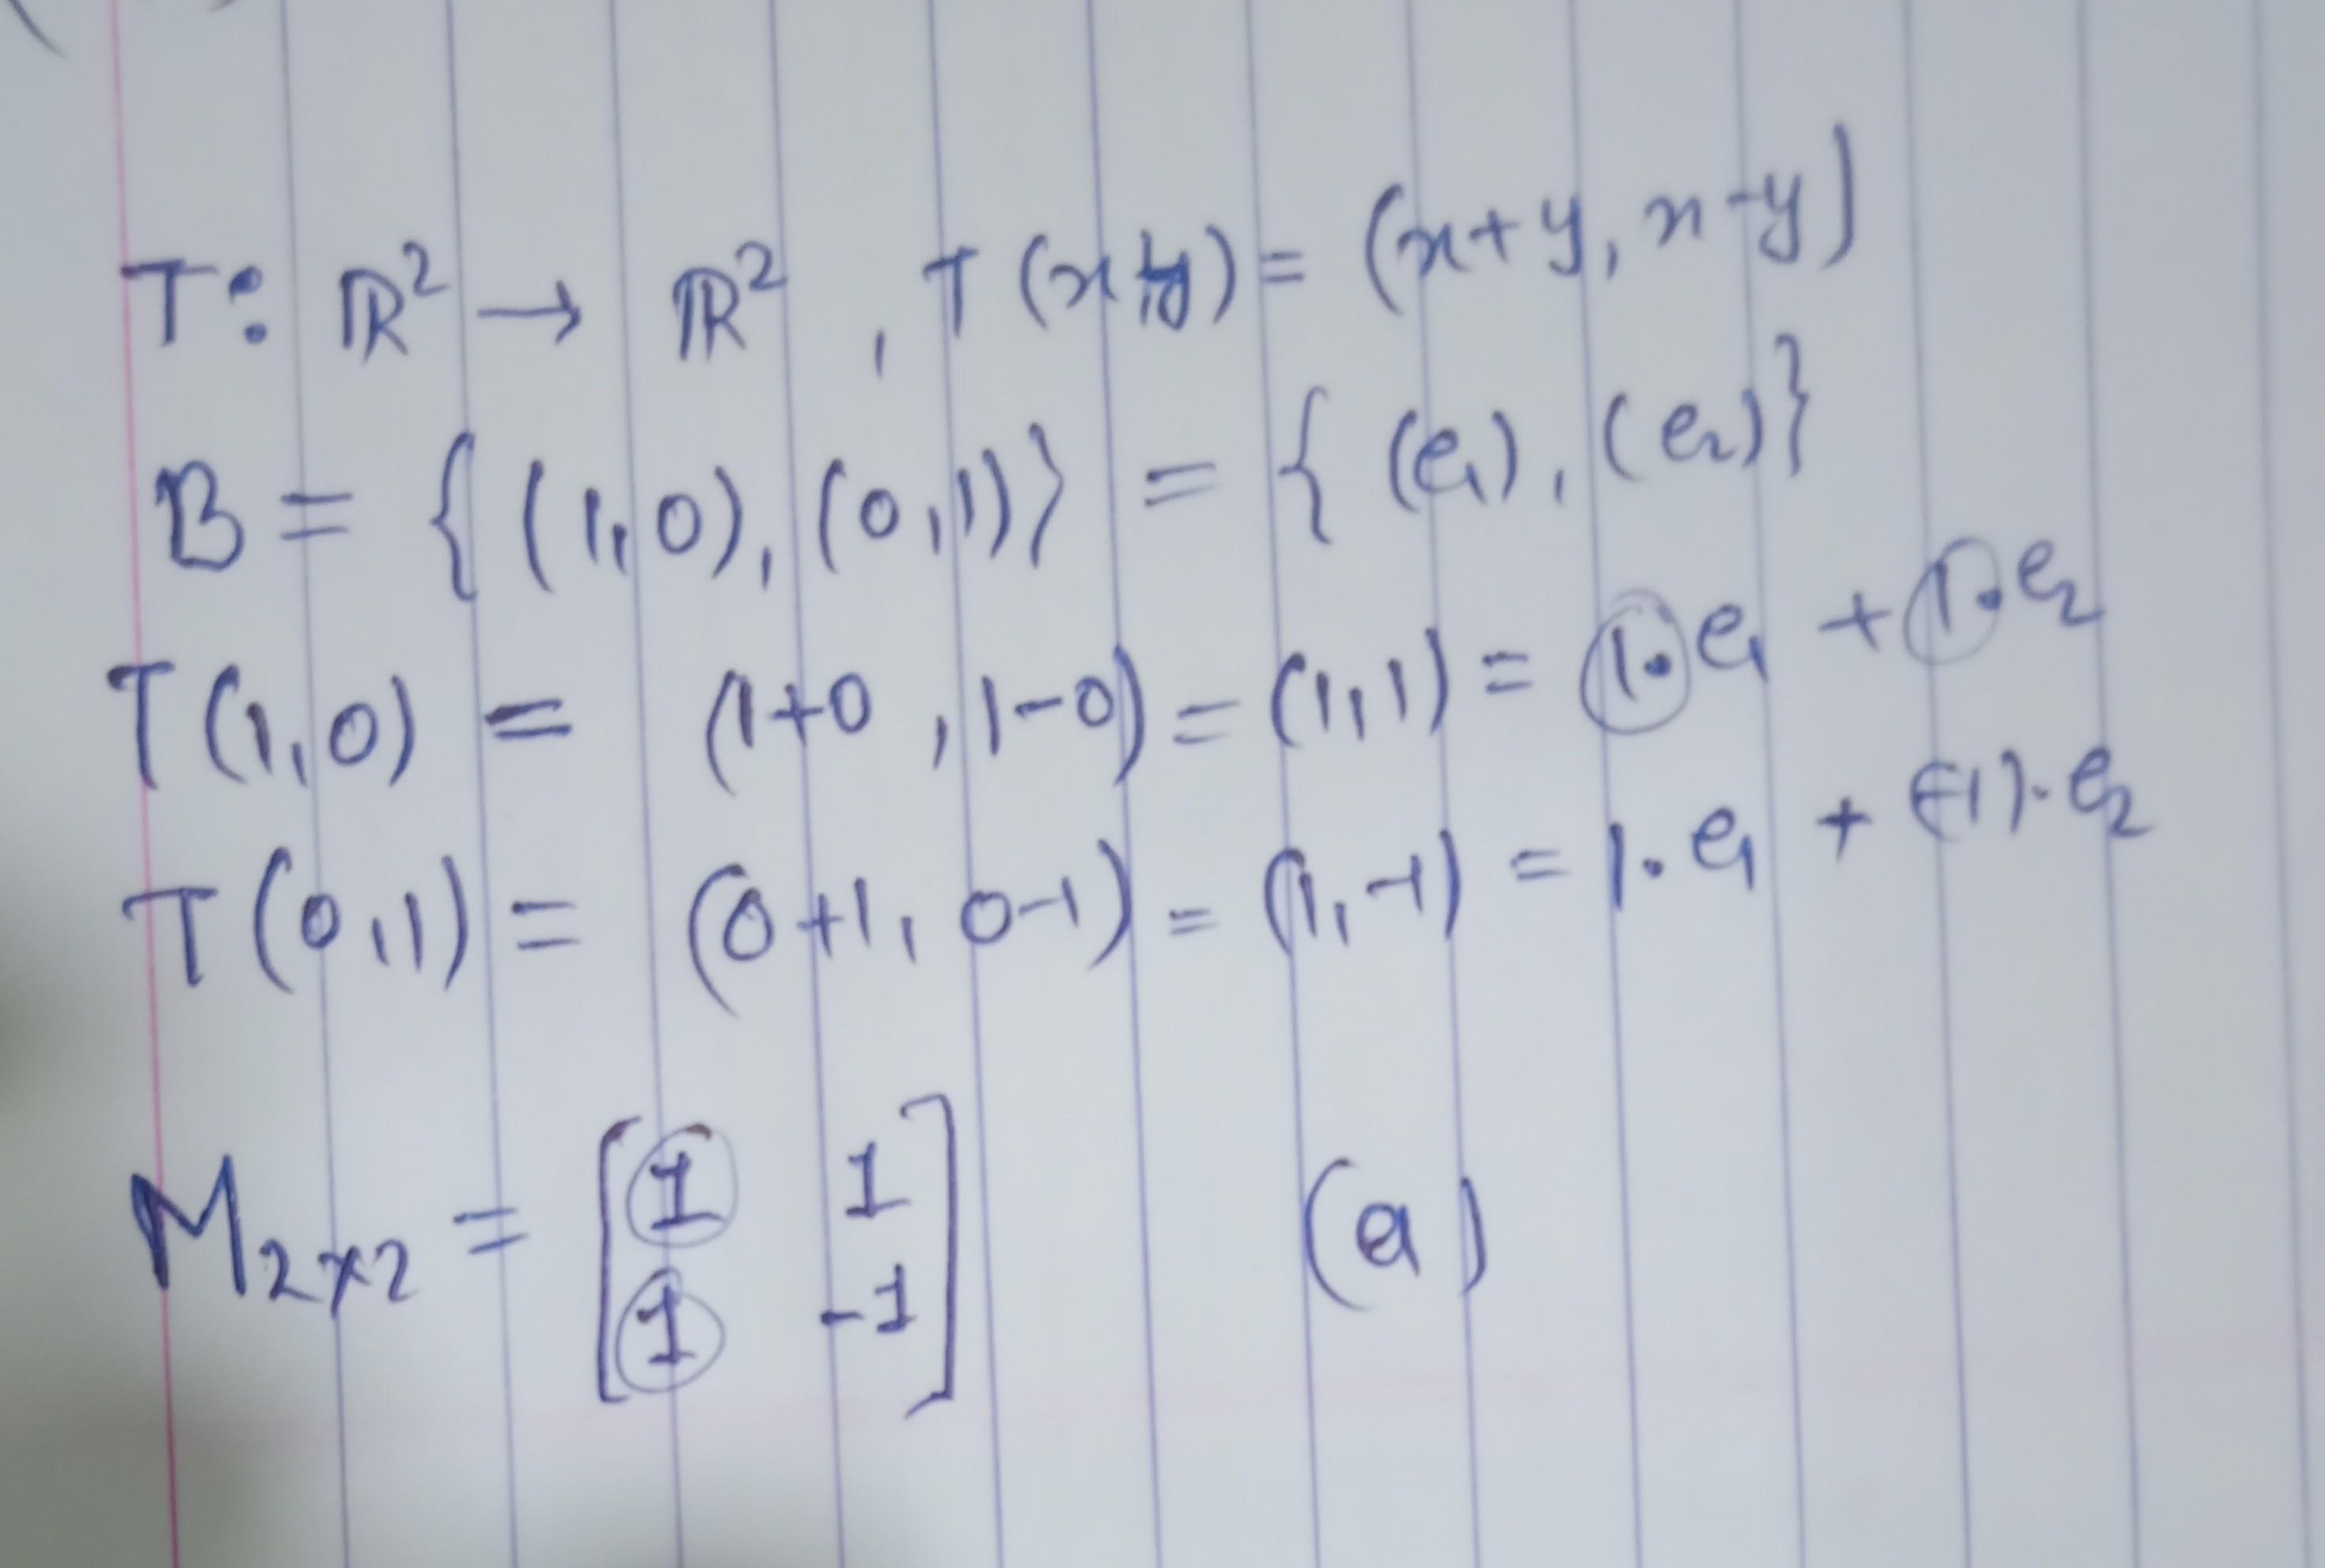 T: ℝ² → ℝ² , T(x,y) = (x+y, x-y)
B = { (1,0), (0,1)} = { (e₁), (e₂)}
T(1,0) = (1+0 , 1-0) = (1,1) = 1.e₁ + 1.e₂
T(0,1) = (0+1, 0-1) = (1,-1) = 1.e₁ + (-1).e₂
M₂ₓ₂ = [1 1
1 -1] (a)